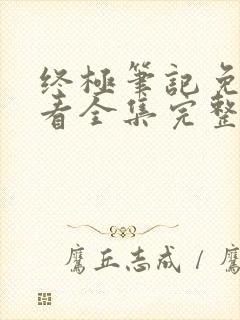 终極筆記免
看全集完整
鷹丘志成 / 鷹